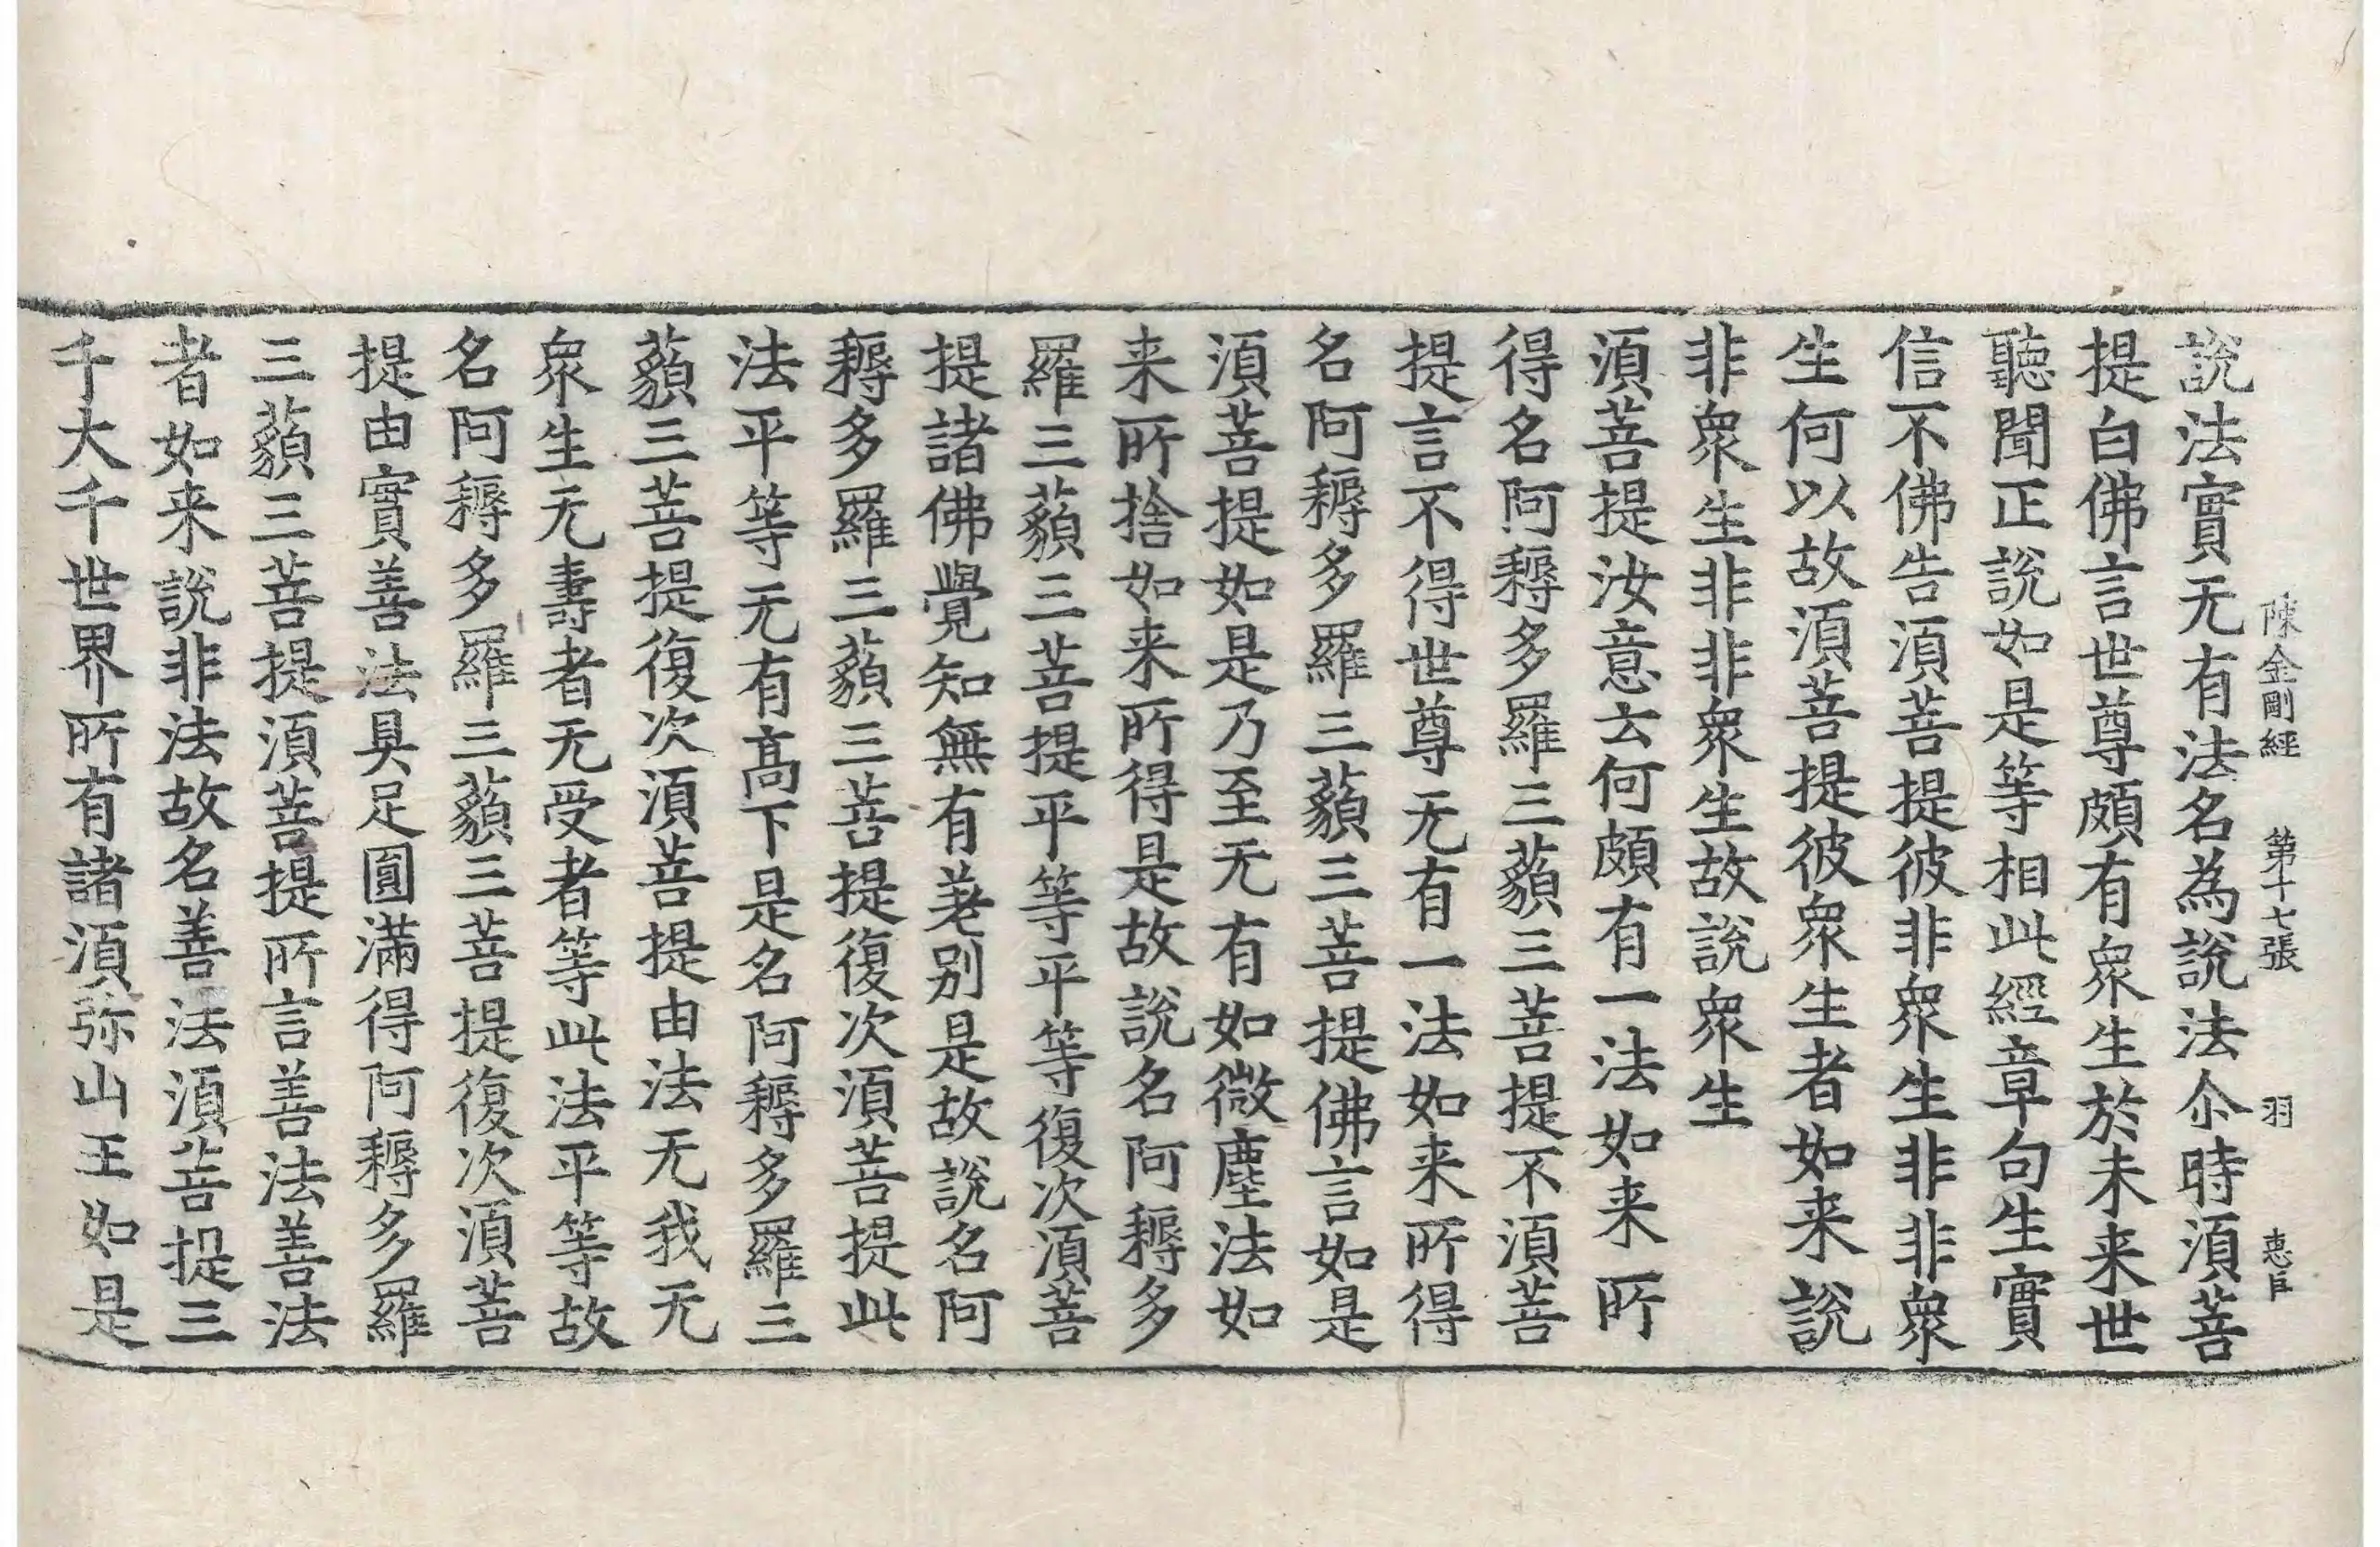 陳金剛經　第十七張　羽　惠臣
說法實无有法名為說法尒時須菩
提白佛言世尊頗有衆生於未来世
聽聞正說如是等相此經章句生實
信不佛告須菩提彼非衆生非非衆
生何以故須菩提彼衆生者如来說
非衆生非非衆生故說衆生
須菩提汝意云何頗有一法如来所
得名阿耨多羅三藐三菩提不須菩
提言不得世尊无有一法如来所得
名阿耨多羅三藐三菩提佛言如是
須菩提如是乃至无有如微塵法如
来所捨如来所得是故說名阿耨多
羅三藐三菩提平等平等復次須菩
提諸佛覺知無有差别是故說名阿
耨多羅三藐三菩提復次須菩提此
法平等无有高下是名阿耨多羅三
藐三菩提復次須菩提由法无我无
衆生无壽者无受者等此法平等故
名阿耨多羅三藐三菩提復次須菩
提由實善法具足圓滿得阿耨多羅
三藐三菩提須菩提所言善法善法
者如来說非法故名善法須菩提三
千大千世界所有諸須弥山王如是